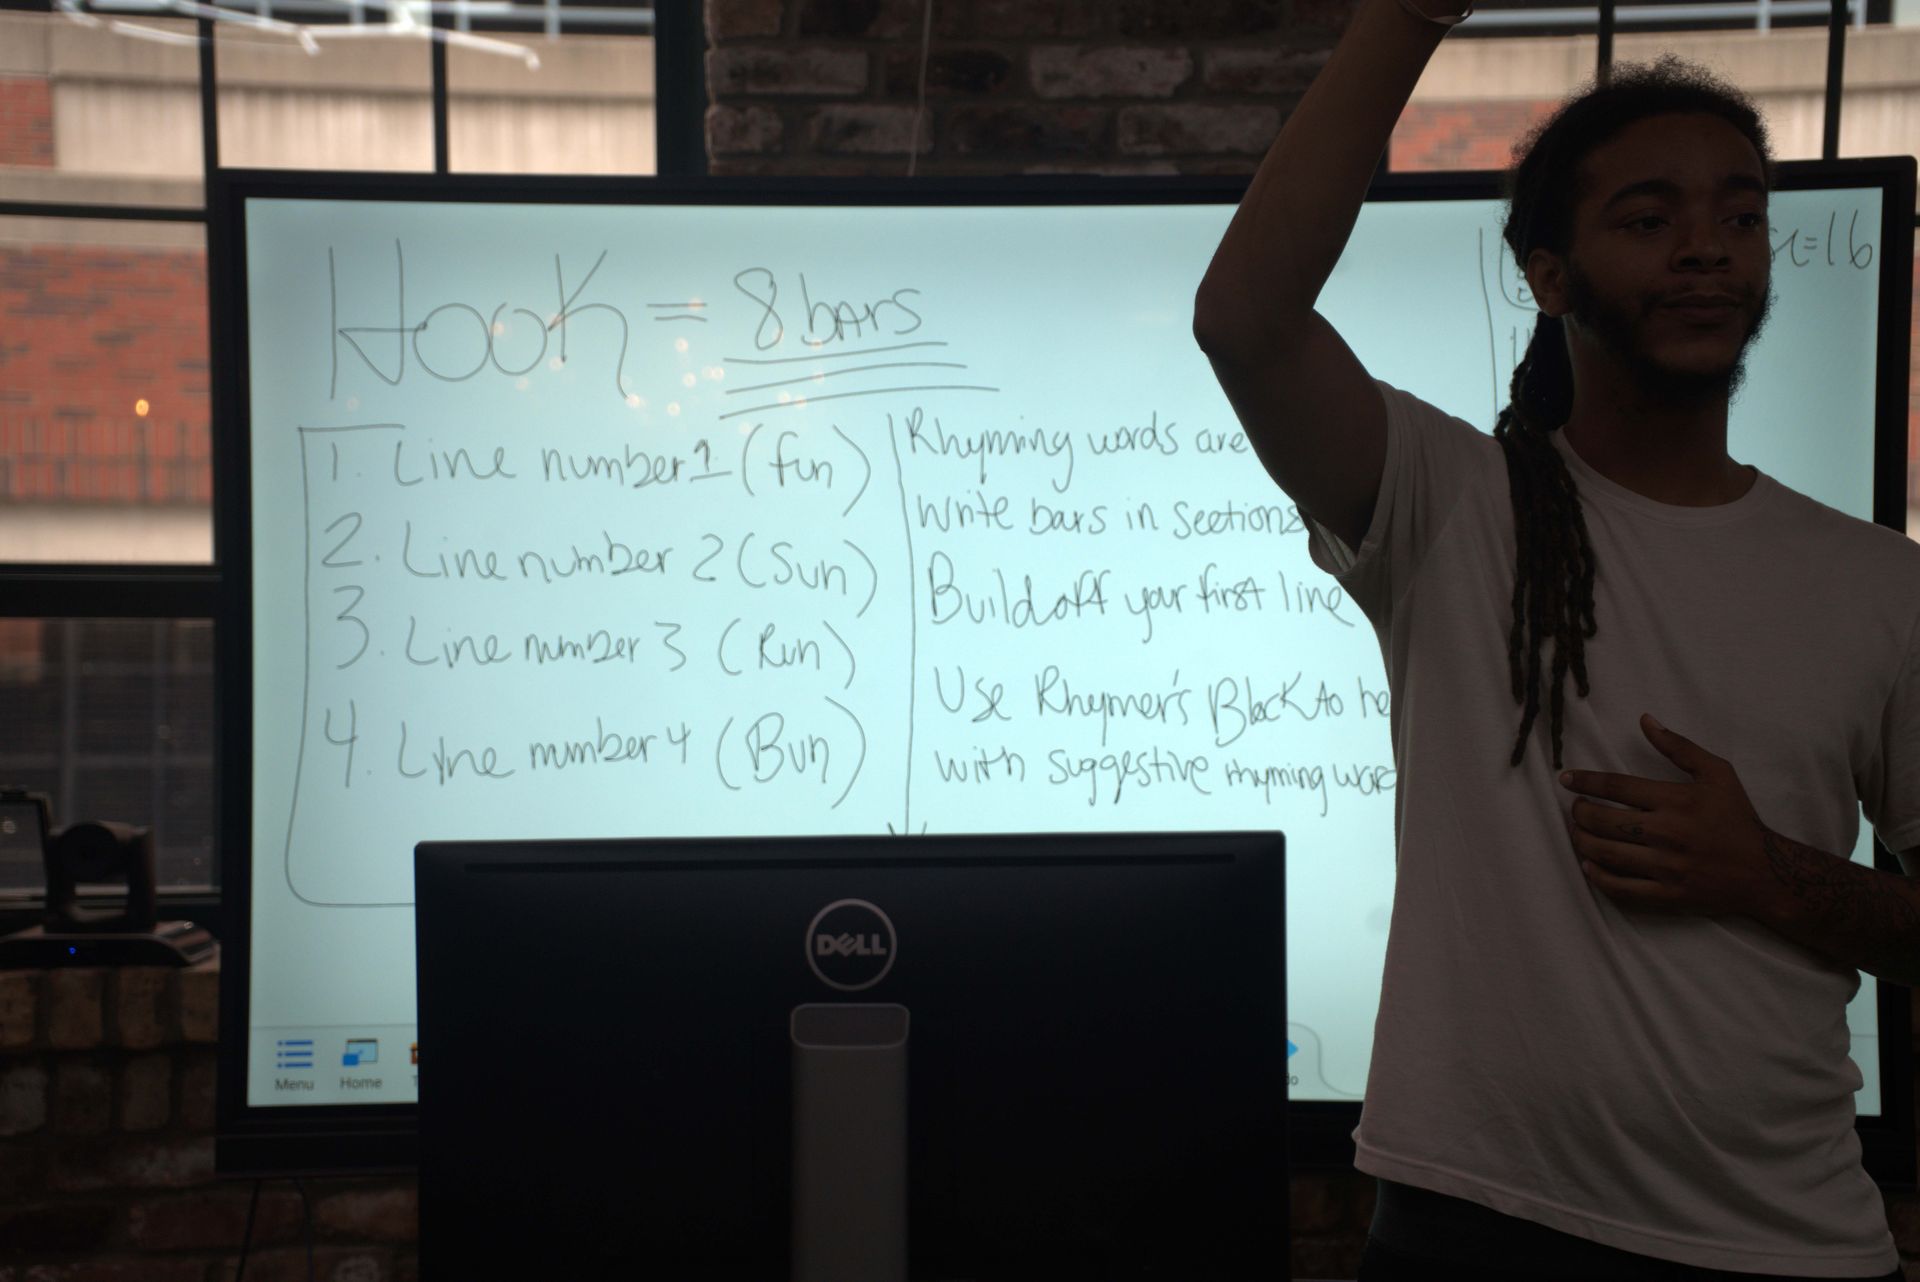 HooK = 8 bars
1. Line number 1 (fun)
2. Line number 2 (Sun)
3. Line number 3 (Run)
4. Line number 4 (Bun)
Rhyming words are
Write bars in sections
Build off your first line
Use Rhymer's Block to
with suggestive rhyming
=16
DELL
Menu
Home